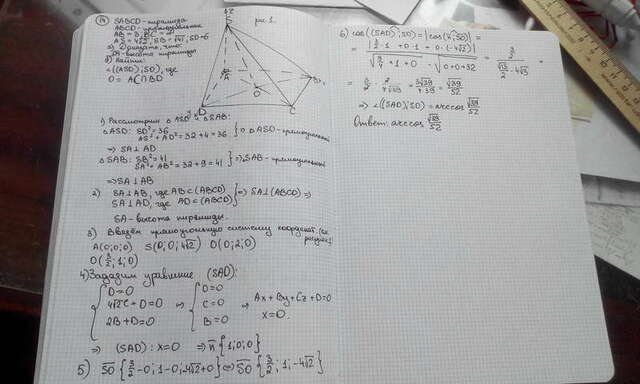 SABCD - пирамида
ABCD - прямоугольник
AB = 3, BC = 2
AS = 4√2, SB = √41, SD = 6
а) Доказать, что:
SA - высота пирамиды
б) Найти:
∠((ASD); SO), где
O = AC ∩ BD
рис. 1.
S
A
B
C
D
O
1) Рассмотрим Δ ASD и Δ SAB:
Δ ASD: SD² = 36
AS² + AD² = 32 + 4 = 36 } ⇒ Δ ASD - прямоугольный
⇒ SA ⊥ AD
Δ SAB: SB² = 41
SA² + AB² = 32 + 9 = 41 } ⇒ SAB - прямоугольный
⇒ SA ⊥ AB
2) SA ⊥ AB, где AB ⊂ (ABCD)
SA ⊥ AD, где AD ⊂ (ABCD) } ⇒ SA ⊥ (ABCD) ⇒
SA - высота пирамиды.
3) Введём прямоугольную систему координат (см. рисунок 1)
A(0; 0; 0) S(0; 0; 4√2) D(0; 2; 0)
O(3/2; 1; 0)
4) Зададим уравнение (SAD):
{ D = 0
4√2C + D = 0
2B + D = 0
⇒ { D = 0
C = 0
B = 0
⇒ Ax + By + Cz + D = 0
x = 0
⇒ (SAD): x = 0 ⇒ n {1; 0; 0}
5) SO {3/2 - 0; 1 - 0; -4√2 + 0} ⇔ SO {3/2; 1; -4√2}
6) cos((SAD); SO) = |cos(n; SO)| =
⇒ ∠((SAD); SO) = arccos √39/52
Ответ: arccos √39/52